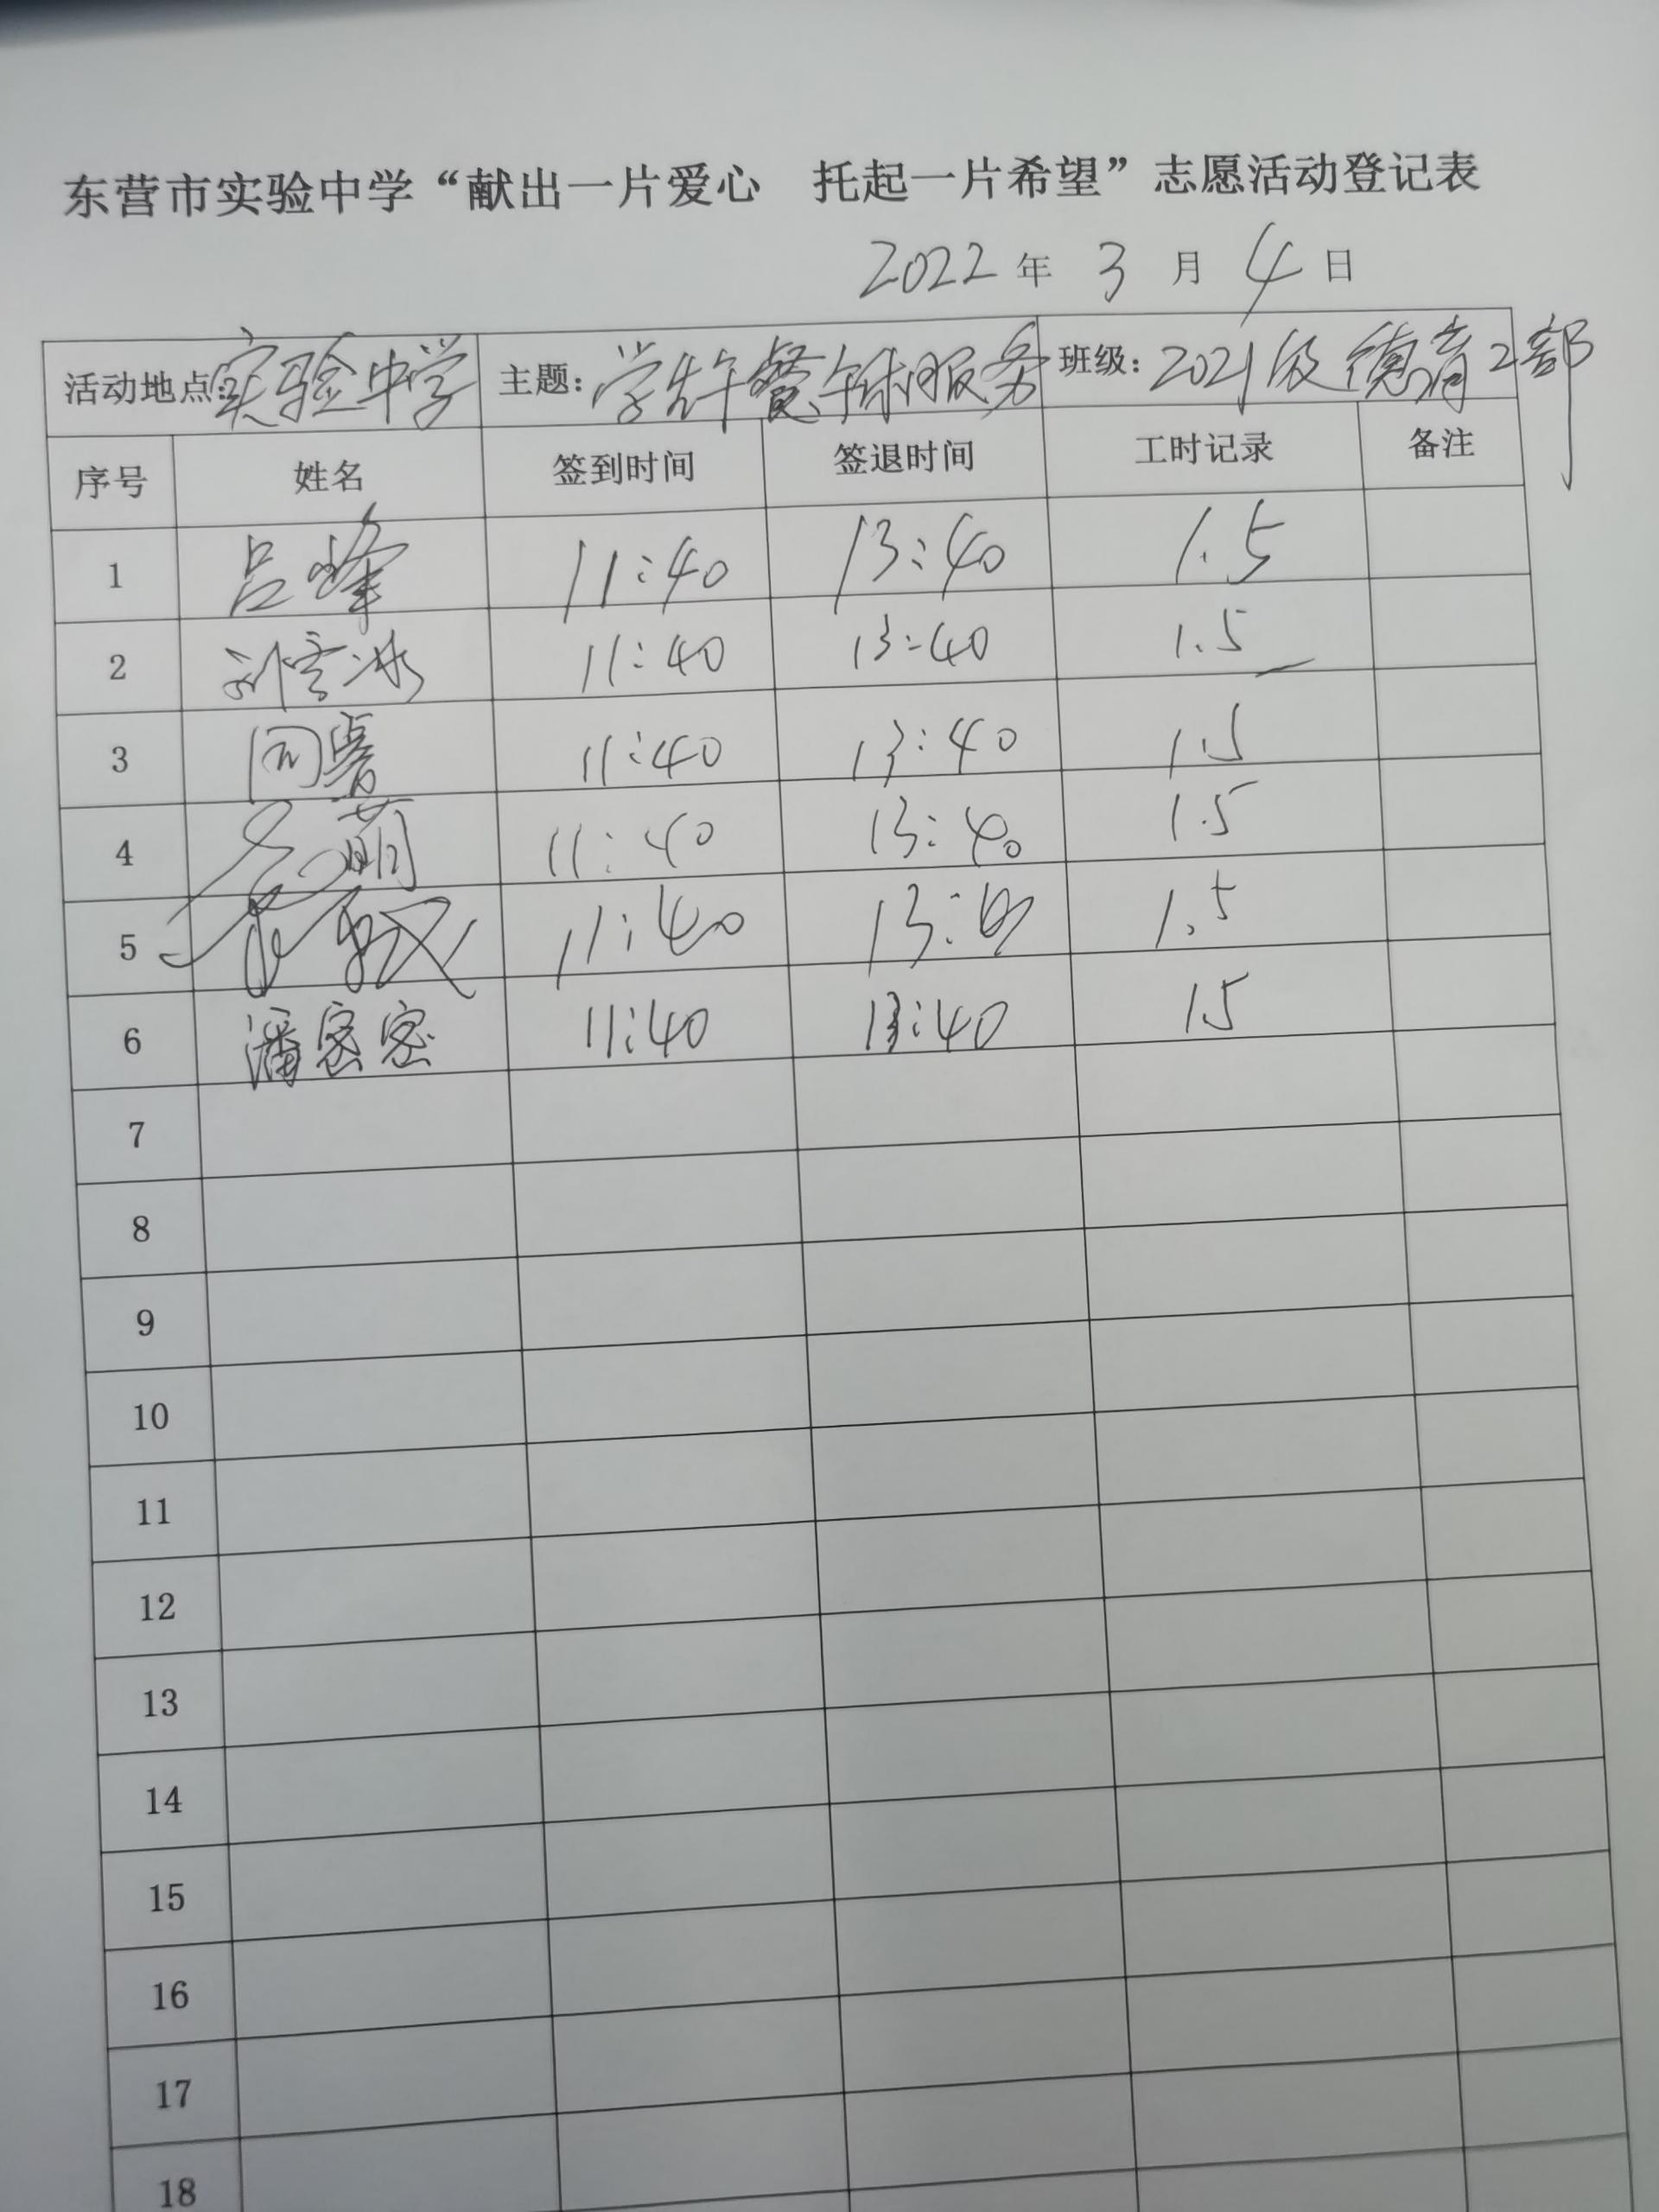 东营市实验中学“献出一片爱心 托起一片希望”志愿活动登记表
2022年 3月 4日
活动地点:实验中学 主题:学生午餐午休服务 班级:2021级德育2部
序号 姓名 签到时间 签退时间 工时记录 备注
1 吕峰 11:40 13:40 1.5
2 刘雪冰 11:40 13:40 1.5
3 11:40 13:40 1.5
4 萌 11:40 13:40 1.5
5 11:40 13:40 1.5
6 潘密密 11:40 13:40 1.5
7
8
9
10
11
12
13
14
15
16
17
18